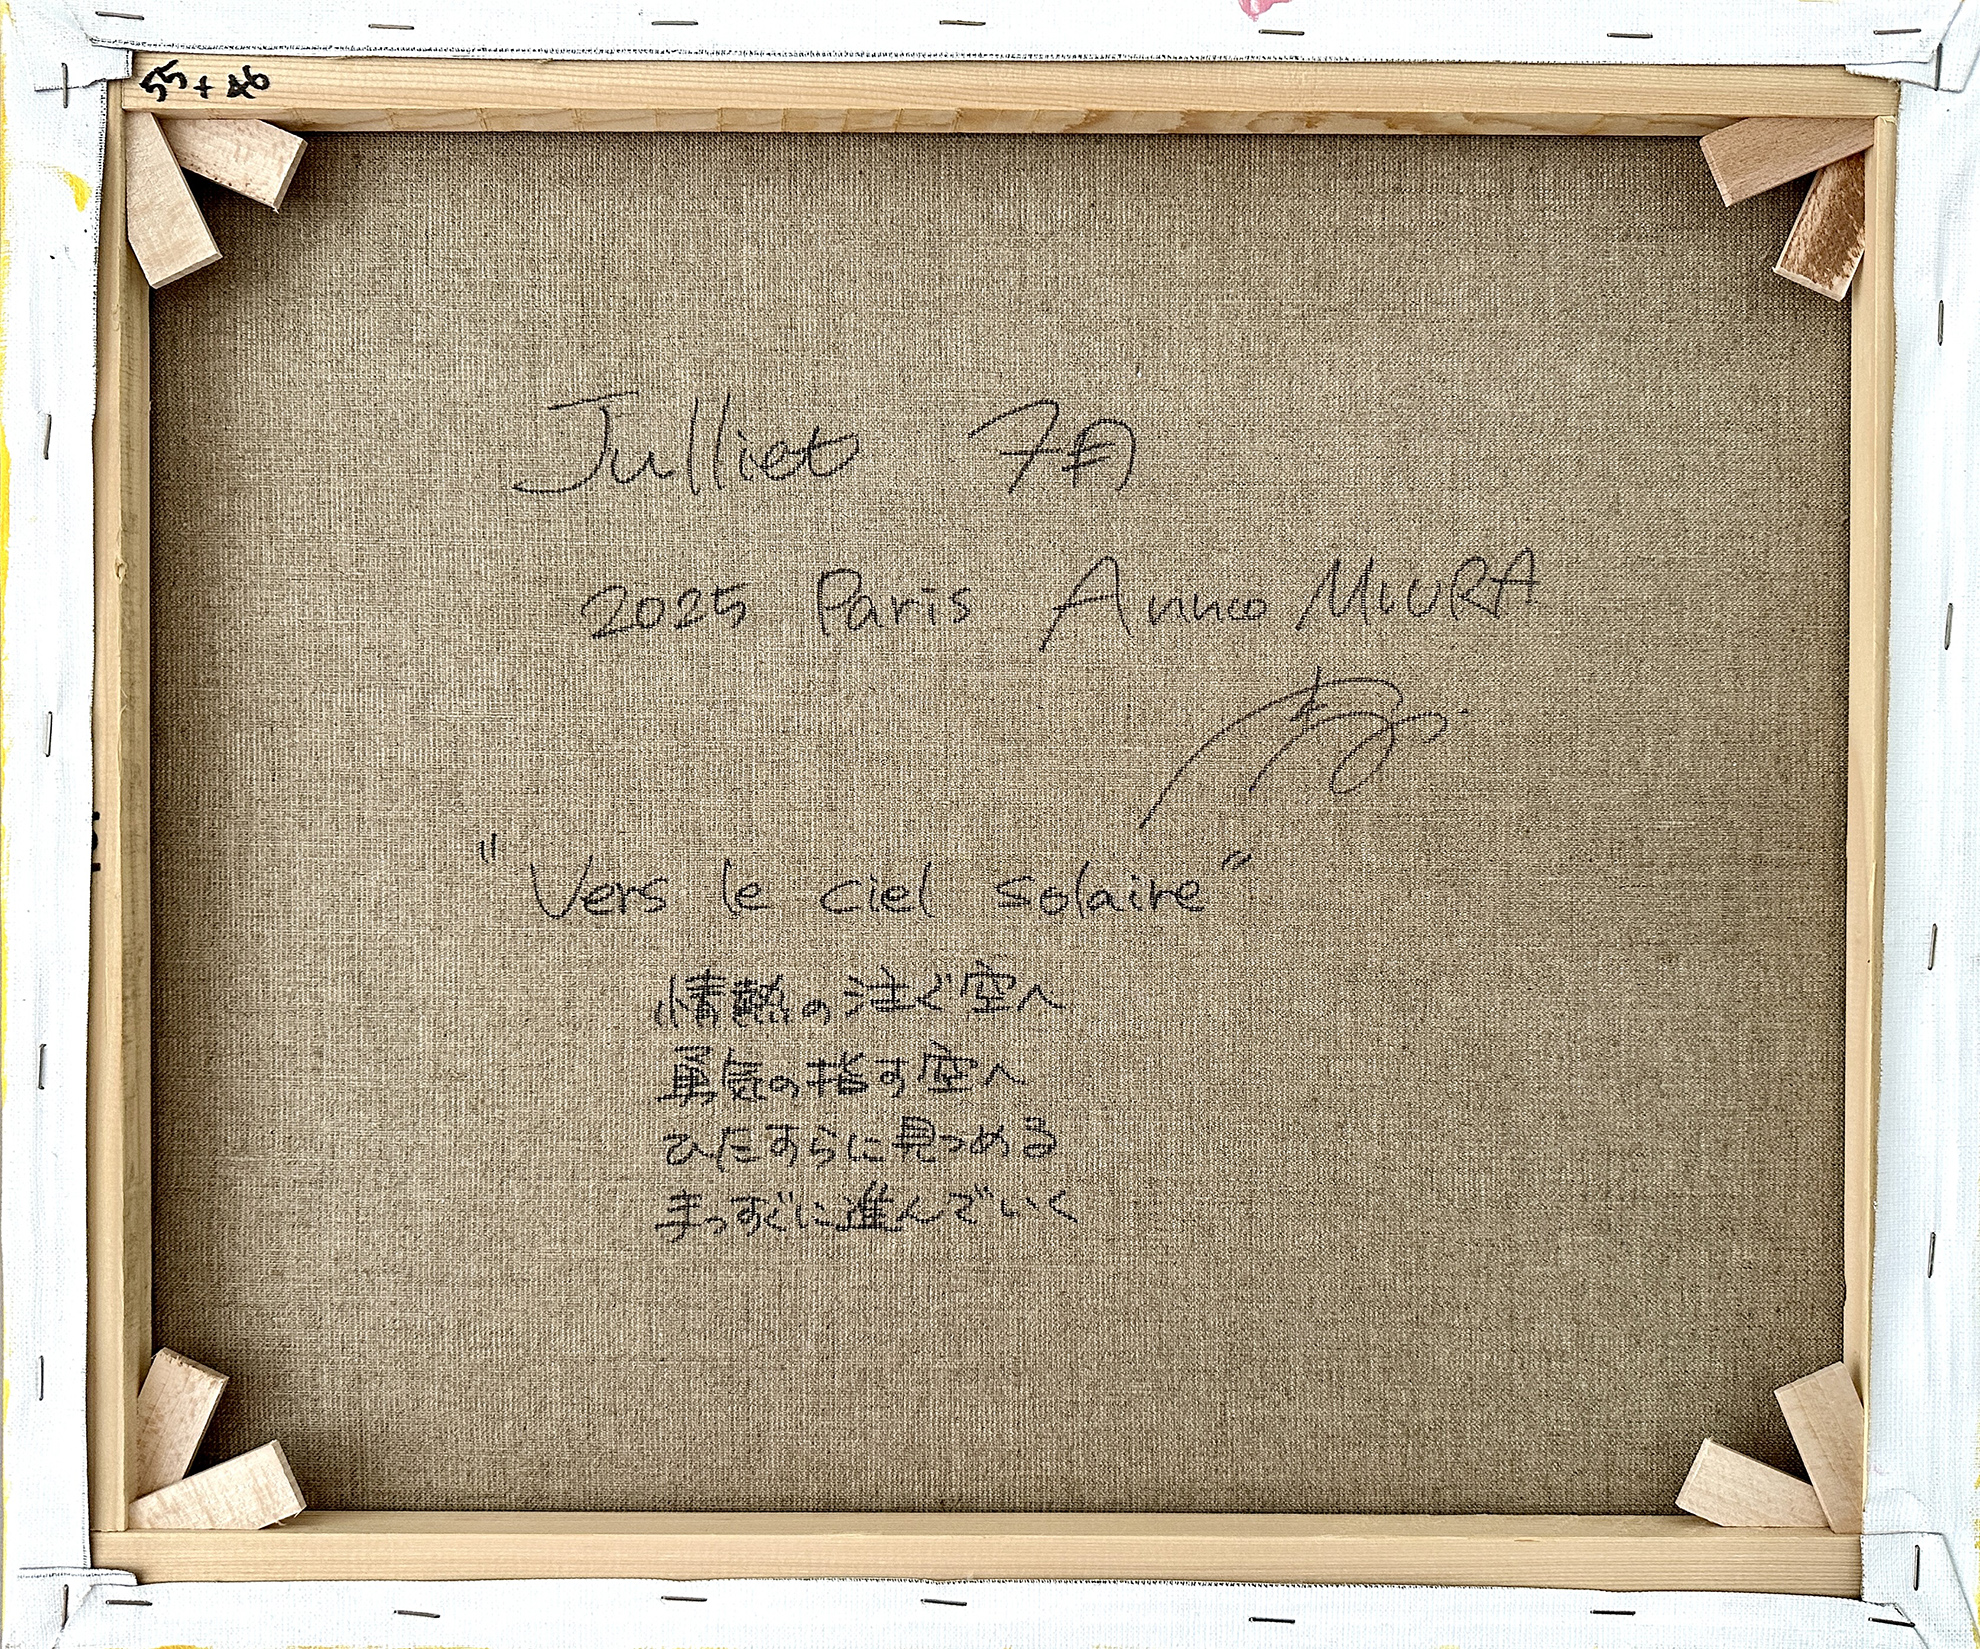 55 + 46
Julliet 7月
2025 Paris Anno MIURA
"Vers le ciel solaire"
情熱の注ぐ空へ
勇気の指す空へ
ひたすらに見つめる
まっすぐに進んでいく